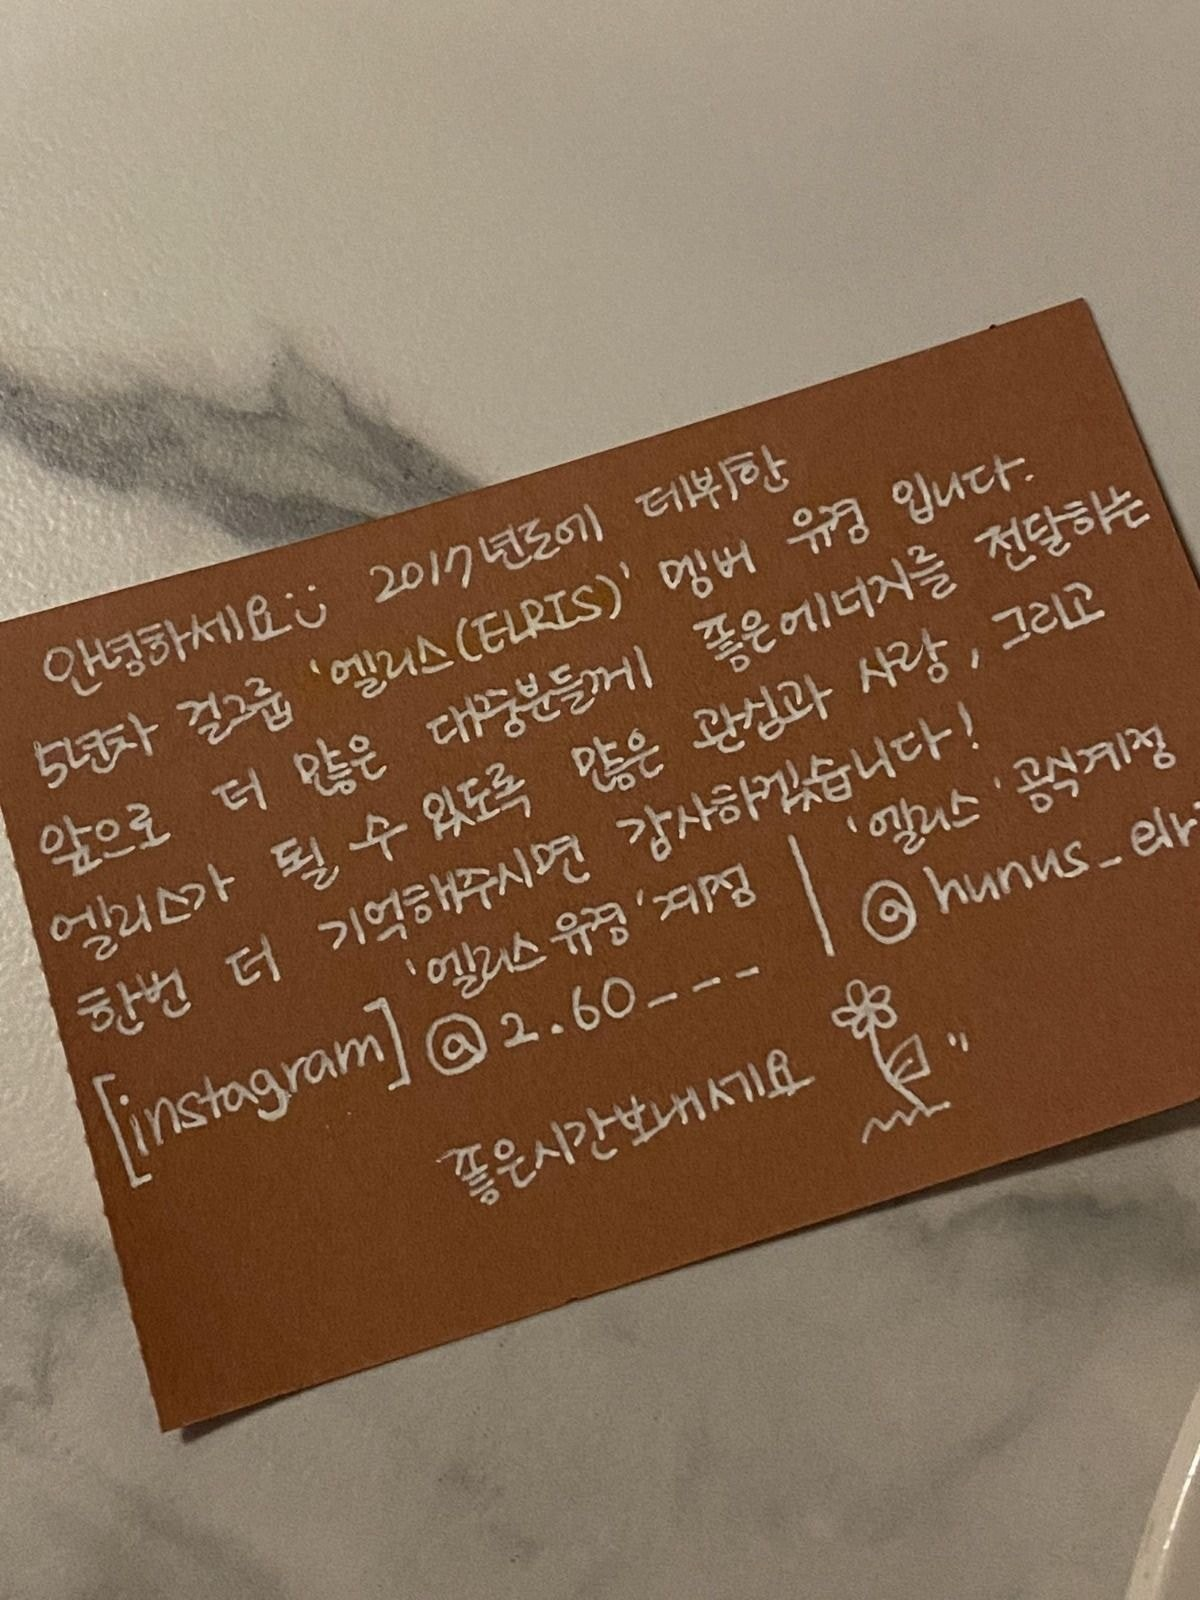 안녕하세요:) 2017년도에 데뷔한
5년차 걸그룹 '엘리스(ELRIS)' 멤버 유경 입니다.
앞으로 더 많은 대중분들께 좋은에너지를 전달하는
엘리스가 될 수 있도록 많은 관심과 사랑, 그리고
한번 더 기억해주시면 감사하겠습니다!
'엘리스 유경'계정 | '엘리스' 공식계정
[instagram] @2.60_ _ _ @hunus_elr
좋은시간보내시기요